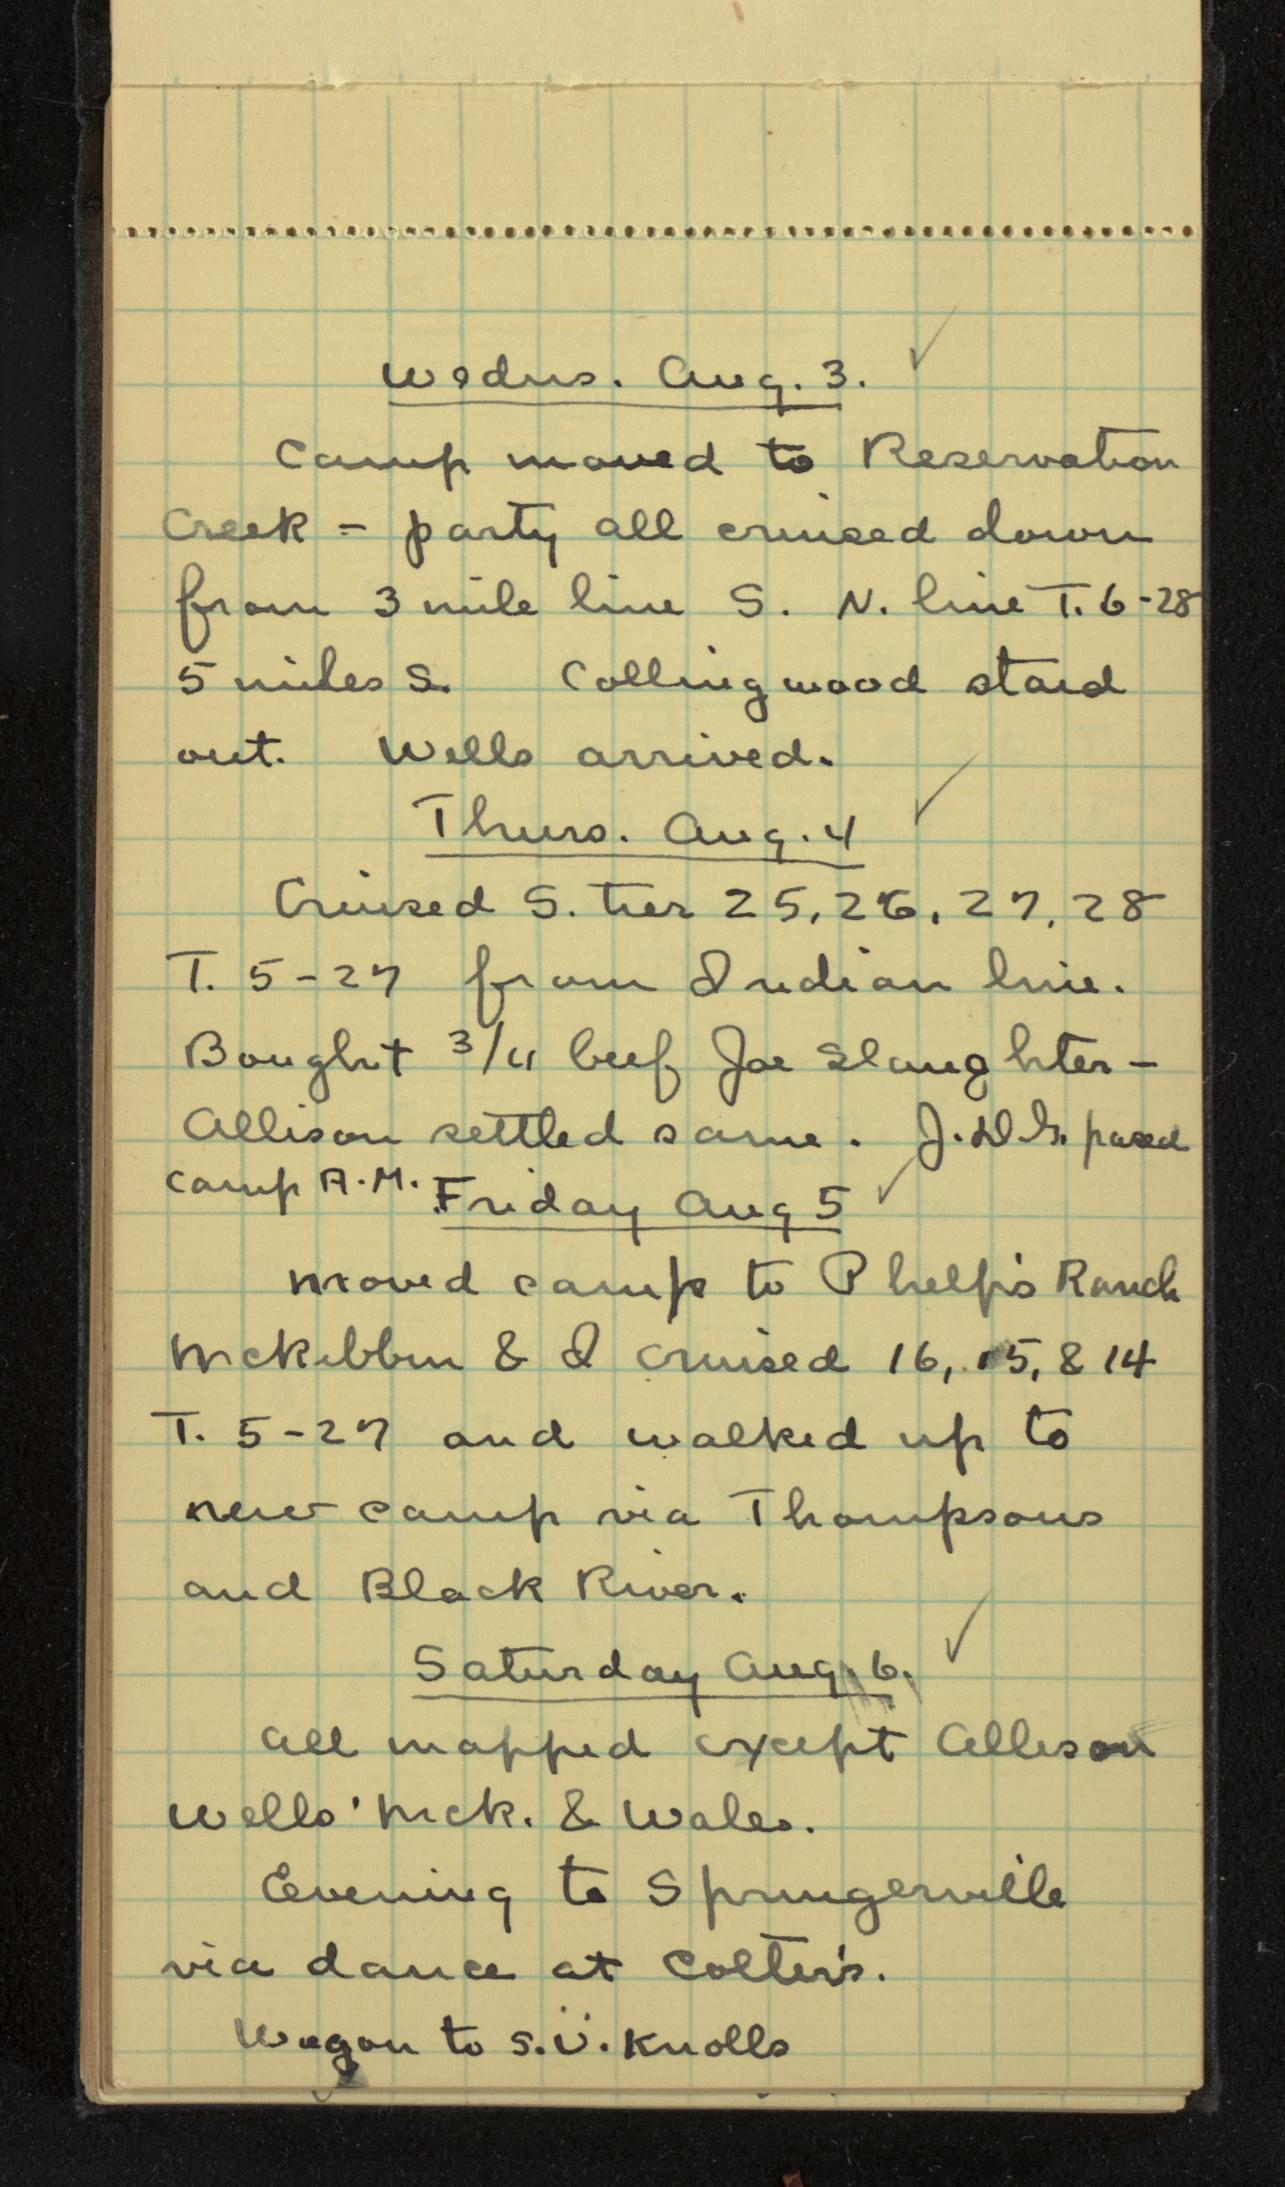 Wednes. Aug. 3.
Camp moved to Reservation
Creek = party all cruised down
from 3 mile line S. N. line T. 6-28
5 miles S. Collingwood staid
out. Wells arrived.
Thurs. Aug. 4
Cruised S. tier 25, 26, 27, 28
T. 5-27 from Indian line.
Bought 3/4 beef Joe Slaughter -
Allison settled same. J.D.G. passed
camp A.M.
Friday Aug 5
Moved camp to Phelp's Ranch
McKibben & I cruised 16, 15, & 14
T. 5-27 and walked up to
new camp via Thompsons
and Black River.
Saturday Aug. 6.
All mapped except Allison
Wells' McK. & Wales.
Evening to Springerville
via dance at Colter's.
Wagon to S.V. Knolls